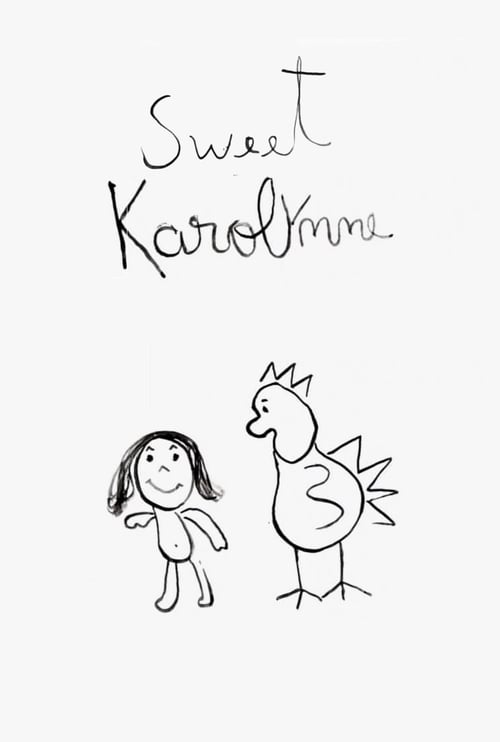 Sweet
Karolynne